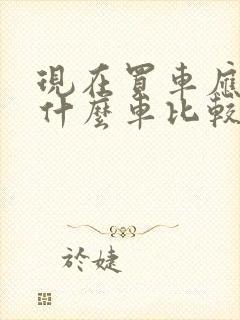 現在買車應
什麼車比較
於婕